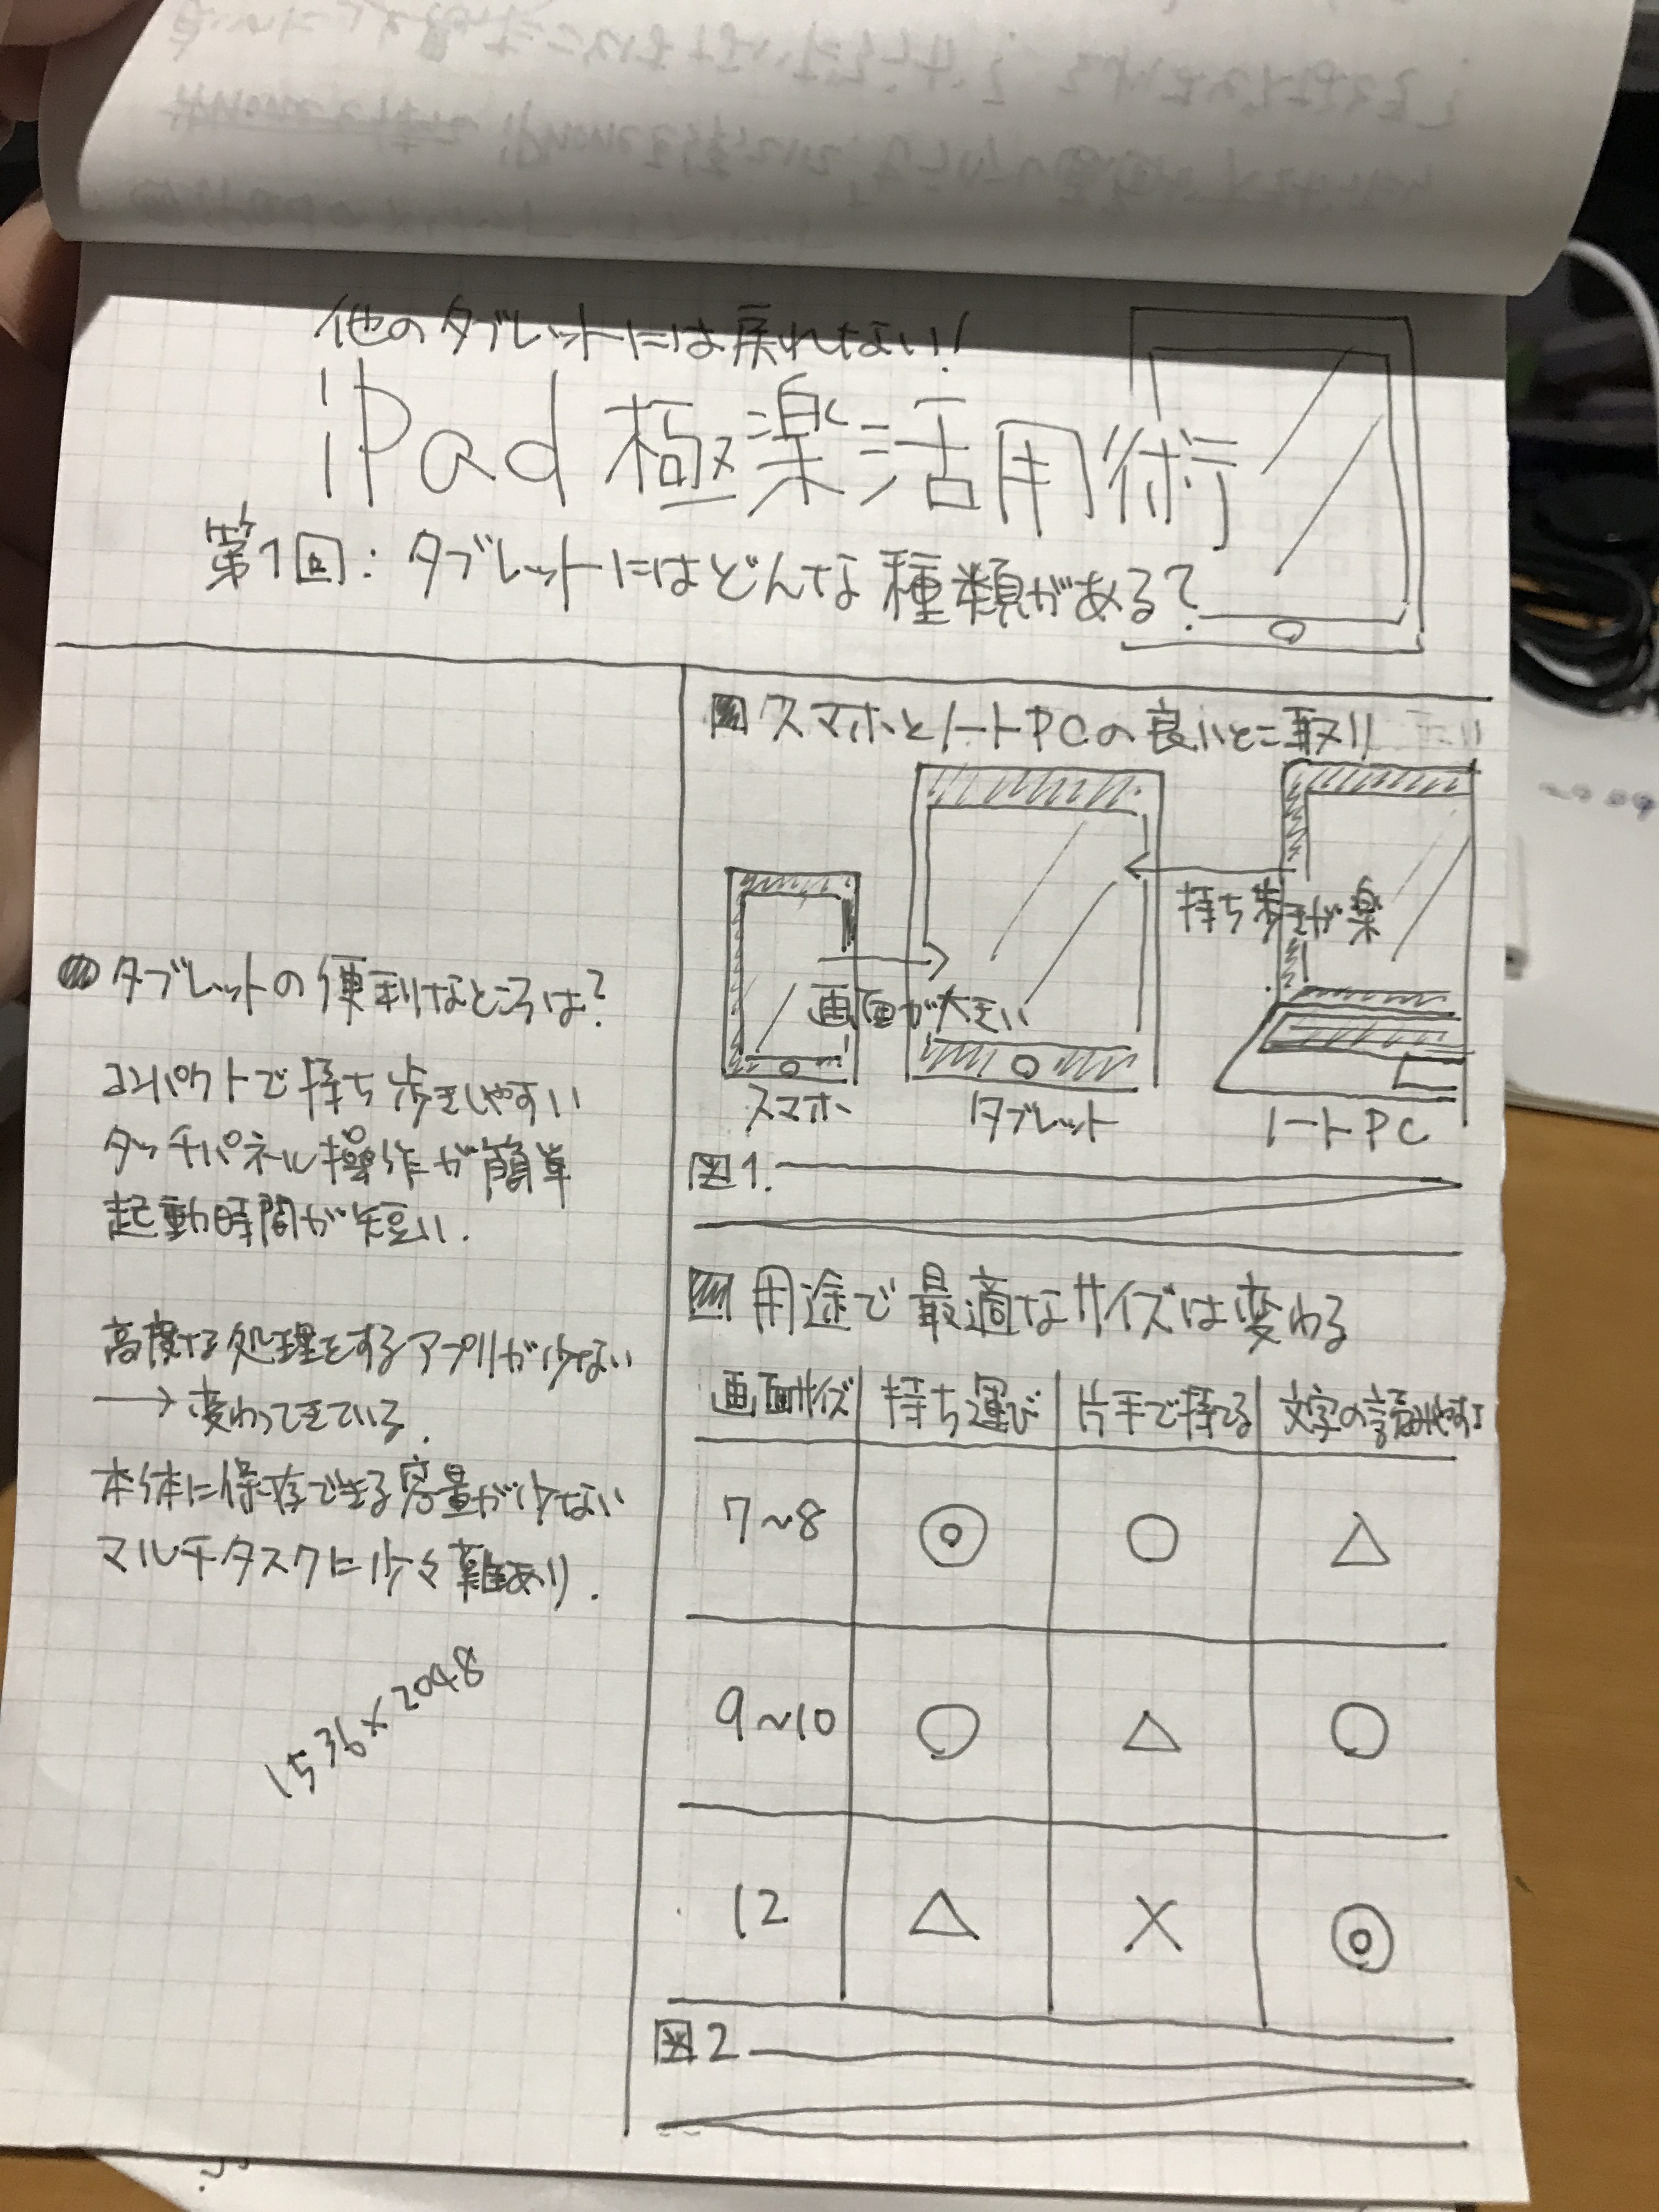 他のタブレットには戻れない!
iPad極楽活用術
第1回:タブレットにはどんな種類がある?
●タブレットの便利なところは?
コンパクトで持ち歩きしやすい
タッチパネル操作が簡単
起動時間が短い.
高度な処理をするアプリが少ない
→変わってきている.
本体に保存できる容量が少ない
マルチタスクに少々難あり.
1536×2048
■スマホとノートPCの良いとこ取り
持ち歩きが楽
画面が大きい
スマホ タブレット ノートPC
図1.
■用途で最適なサイズは変わる
画面サイズ 持ち運び 片手で持てる 文字の読みやすさ
7~8 ◎ ○ △
9~10 ○ △ ○
12 △ × ◎
図2